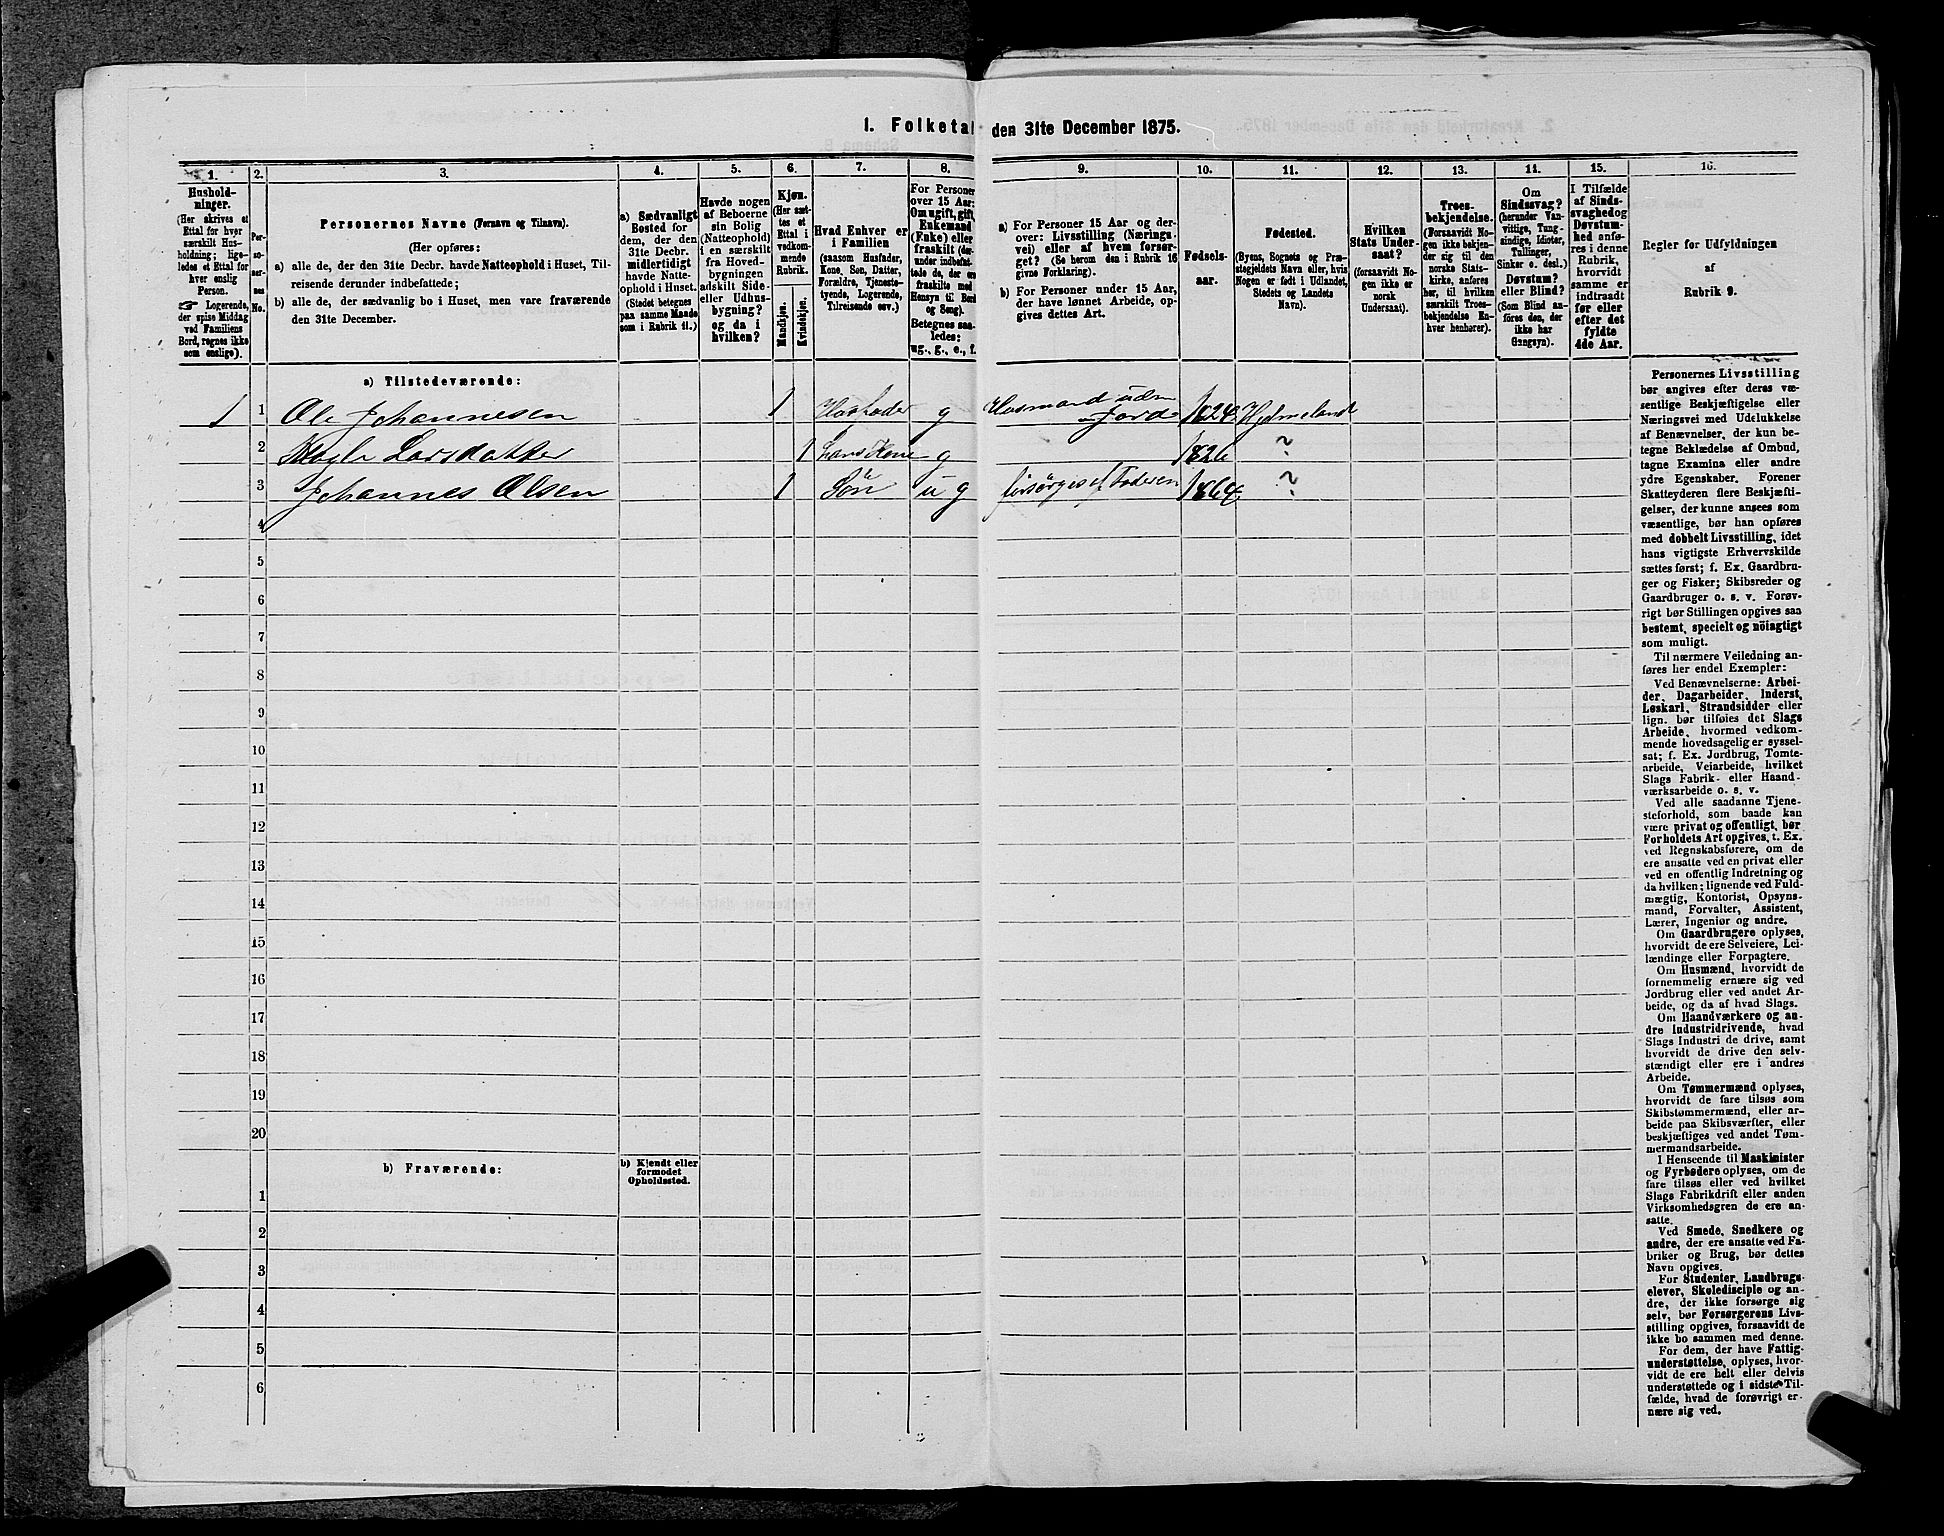 1. Folketal den 31te December 1875.
1.
Hushold-
ninger.
(Her skrives et
Ettal for hver
særskilt Hus-
holdning; lige-
ledes et Ettal for
hver enslig
Person.
☞ Logerende,
der spise Middag
ved Familiens
Bord, regnes ikke
som enslige).
2.
Per-
so-
ner-
nes
No.
3.
Personernes Navne (Fornavn og Tilnavn).
(Her opføres:
a) alle de, der den 31te Decbr. havde Natteophold i Huset, Til-
reisende derunder indbefattede;
b) alle de, der sædvanlig bo i Huset, men vare fraværende
den 31te December.)
4.
a) Sædvanligt
Bosted for
dem, der den
31te Decbr.
midlertidigt
havde Natte-
ophold i Huset.
(Stedet betegnes
paa samme Maade
som i Rubrik 11.)
5.
Havde nogen
af Beboerne
sin Bolig
(Natteophold)
i en særskilt
fra Hoved-
bygningen
adskilt Side-
eller Udhus-
bygning?
og da i
hvilken?
6.
Kjøn.
(Her sæt-
tes et
Ettal i
vedkom-
mende
Rubrik.
Mandkjøn.
Kvindekjøn.
7.
Hvad Enhver er
i Familien
(saasom Husfader,
Kone, Søn, Datter,
Forældre, Tjeneste-
tyende, Logerende,
Tilreisende osv.)
8.
For Personer
over 15 Aar:
Om ugift, gift,
Enkemand
(Enke) eller
fraskilt (der-
under indbefat-
tede de, der ere
fraskilte med
Hensyn til Bord
og Seng).
Betegnes saa-
ledes:
ug., g., e., f.
9.
a) For Personer 15 Aar og der-
over: Livsstilling (Nærings-
vei) eller af hvem forsør-
get? (Se herom den i Rubrik 16
givne Forklaring).
b) For Personer under 15 Aar,
der have lønnet Arbeide, op-
gives dettes Art.
10.
Fødsels-
aar.
11.
Fødested.
(Byens, Sognets og Præ-
stegjeldets Navn eller, hvis
Nogen er født i Udlandet,
Stedets og Landets
Navn).
12.
Hvilken
Stats Under-
saat?
(forsaavidt No-
gen ikke er
norsk
Undersaat).
13.
Troes-
bekjendelse.
(Forsaavidt No-
gen ikke bekjen-
der sig til den
norske Stats-
kirke, anføres
her, til hvilken
særskilt Troes-
bekjendelse En-
hver henhører).
14.
Om
Sindssvag?
(herunder Van-
vittige, Tung-
sindige, Idioter,
Tullinger,
Sinker o. desl.)
Døvstum?
eller Blind?
(Som Blind an-
føres den, der
ikke har
Gangsyn).
15.
I Tilfælde
af Sinds-
svaghed og
Døvstum-
hed anfø-
res i denne
Rubrik,
hvorvidt
samme er
indtraadt
før eller
efter det
fyldte
4de Aar.
16.
Regler for Udfyldningen
af
Rubrik 9.
a) Tilstedeværende:
1 1 Ole Johannesen 1 Husfader g Husmand uden Jord 1824 Hjelmeland
2 Larsdatter 1 hans Kone g 1826 ?
3 Johannes Olsen 1 Søn ug forsørges af Faderen 1864 ?
4
5
6
7
8
9
10
11
12
13
14
15
16
17
18
19
20
b) Fraværende:
b) Kjendt eller
formodet
Opholdssted.
1
2
3
4
5
6
Personernes Livsstilling
bør angives efter deres væ-
sentlige Beskjæftigelse eller
Næringsvei med Udelukkelse
af Benævnelser, der kun be-
tegne Beklædelse af Ombud,
tagne Examina eller andre
ydre Egenskaber. Forener
Skatteyderen flere Beskjæfti-
gelser, der kunne ansees som
væsentlige, bør han opføres
med dobbelt Livsstilling, idet
hans vigtigste Erhvervskilde
sættes først; f. Ex. Gaardbru-
ger og Fisker; Skibsreder og
Gaardbruger o. s. v. Forøv-
rigt bør Stillingen opgives saa
bestemt, specielt og nöiagtigt
som muligt.
Til nærmere Veiledning an-
føres her endel Exempler:
Ved Benævnelserne: Arbei-
der, Dagarbeider, Inderst,
Løskarl, Strandsidder eller
lign. bør tilføies det Slags
Arbeide, hvormed vedkom-
mende hovedsagelig er syssel-
sat; f. Ex. Jordbrug, Tomte-
arbeide, Veiarbeide, hvilket
Slags Fabrik- eller Haand-
værksarbeide o. s. v.
Ved alle saadanne Tjene-
steforhold, som baade kan
være privat og offentligt, bør
Forholdets Art opgives, t. Ex.
ved Regnskabsførere, om de
ere ansatte ved en privat eller
ved en offentlig Indretning og
da hvilken; lignende ved Fuld-
mægtig, Kontorist, Opsyns-
mand, Forvalter, Assistent,
Lærer, Ingeniør og andre.
Om Gaardbrugere oplyses,
hvorvidt de ere Selveiere, Lei-
lændinge eller Forpagtere.
Om Husmænd, hvorvidt de
fornemmelig ernære sig ved
Jordbrug eller ved andet Ar-
beide, og da af hvad Slags.
Om Haandværkere og an-
dre Industridrivende, hvad
Slags Industri de drive, samt
hvorvidt de drive den selv-
stændigt eller ere i andres
Arbeide.
Om Tømmermænd oplyses,
hvorvidt de fare tilsøs som
Skibstømmermænd, eller ar-
beide paa Skibsværfter, eller
beskjæftiges ved andet Tøm-
mermandsarbeide.
I Henseende til Maskinister
og Fyrbødere oplyses, om de
fare tilsøs eller ved hvilket
Slags Fabrikdrift eller anden
Virksomhedsgren de ere an-
satte.
Ved Smede, Snedkere og
andre, der ere ansatte ved Fa-
briker og Brug, bør dettes
Navn opgives.
For Studenter, Landbrugs-
elever, Skoledisciple og an-
dre, der ikke forsørge sig
selv, bør Forsørgerens Livs-
stilling opgives, forsaavidt de
ikke bo sammen med denne.
For dem, der have Fattig-
understøttelse, oplyses, hvor-
vidt de ere helt eller delvis
understøttede og i sidste Til-
fælde, hvad de forøvrigt er-
nære sig ved.